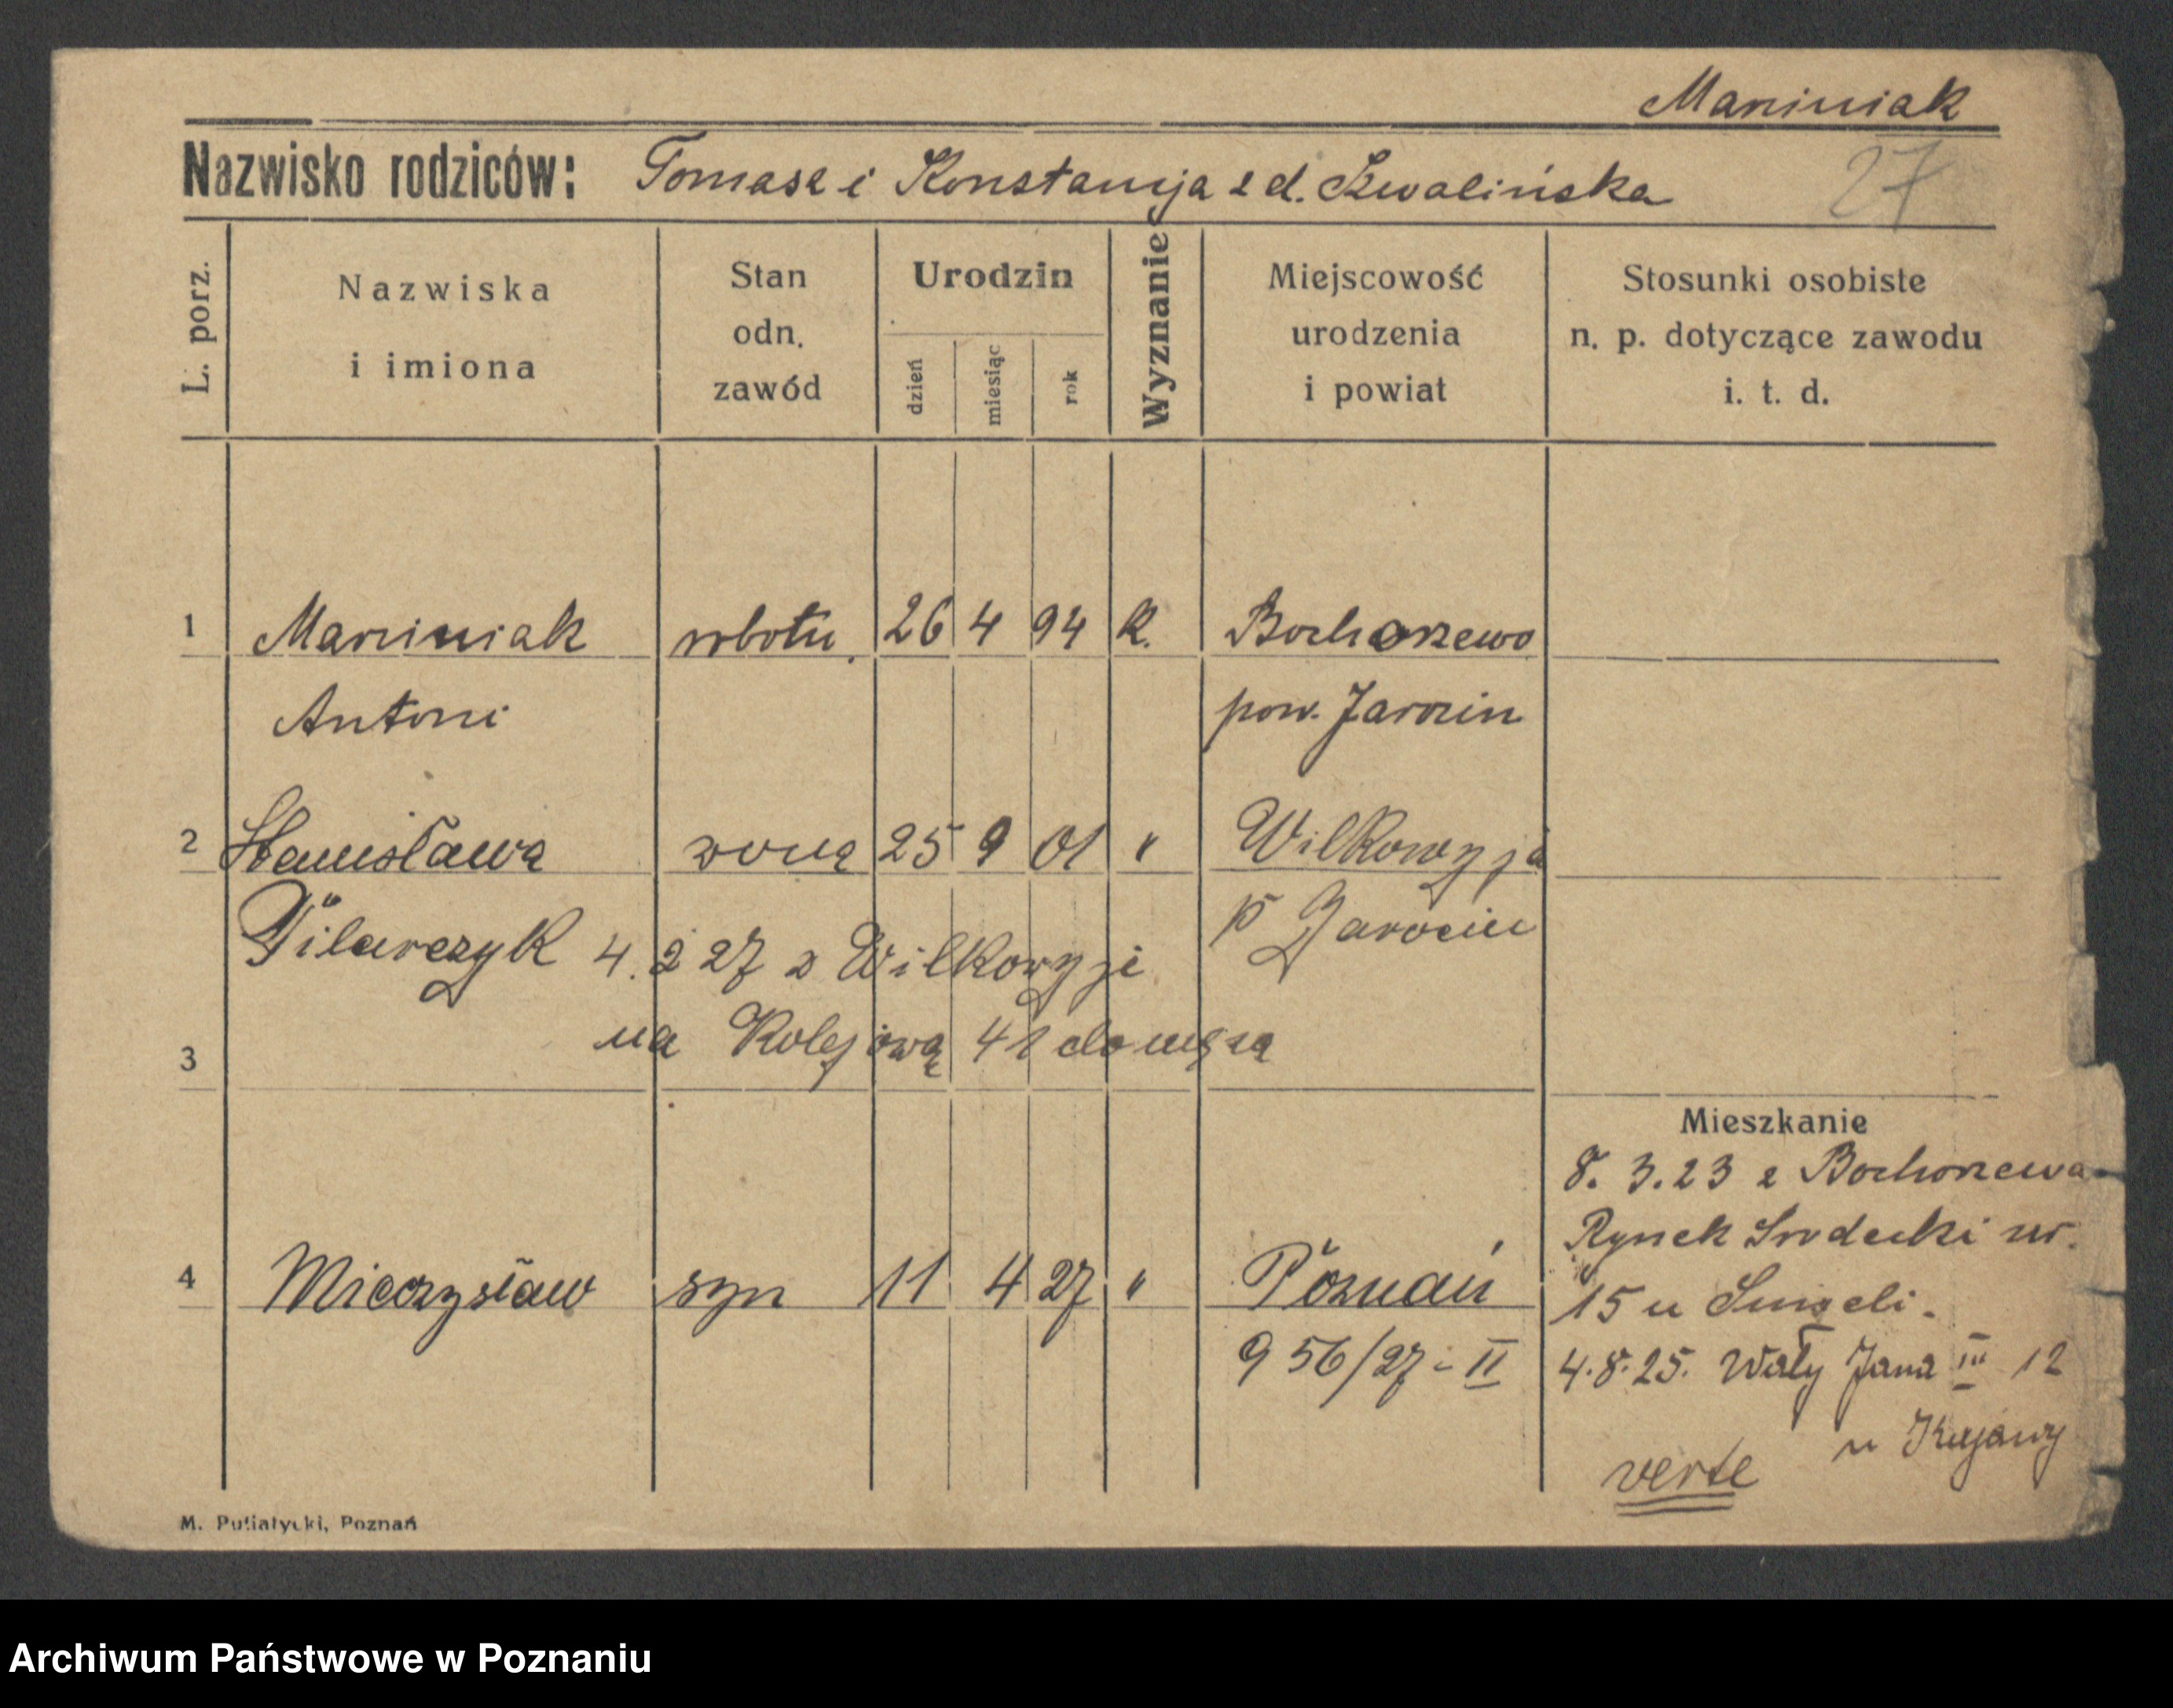 Marciniak
Nazwisko rodziców: Tomasz i Konstancja z d. Szwalińska
27
L. porz.
Nazwiska
i imiona
Stan
odn.
zawód
Urodzin
dzień
miesiąc
rok
Wyznanie
Miejscowość
urodzenia
i powiat
Stosunki osobiste
n. p. dotyczące zawodu
i. t. d.
1 Marciniak robotn. 26 4 94 k. Bochorzewo
Antoni pow. Jarocin
2 Stanisława żona 25 9 01 " Wilkowyja
Pilarczyk p Jarocin
4. 2 27 z Wilkowyji
na Kolejową 41 do męża
3
Mieszkanie
8. 3. 23 z Bochorzewa
Rynek Śródecki nr.
4 Mieczysław syn 11 4 27 " Poznań
15 u
956/27 - II
4. 8. 25. Wały Jana III 12
u Kujawy
verte
M. Putiatycki, Poznań
Archiwum Państwowe w Poznaniu